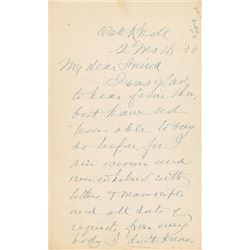 Oak Knoll
12 Mo. 16, '86
My dear Friend
I am glad
to hear from thee
but have not
been able to say
so before, for I
am overrun and
overwhelmed with
letters, & manuscripts
and all sorts of
requests, from every
body I don't know